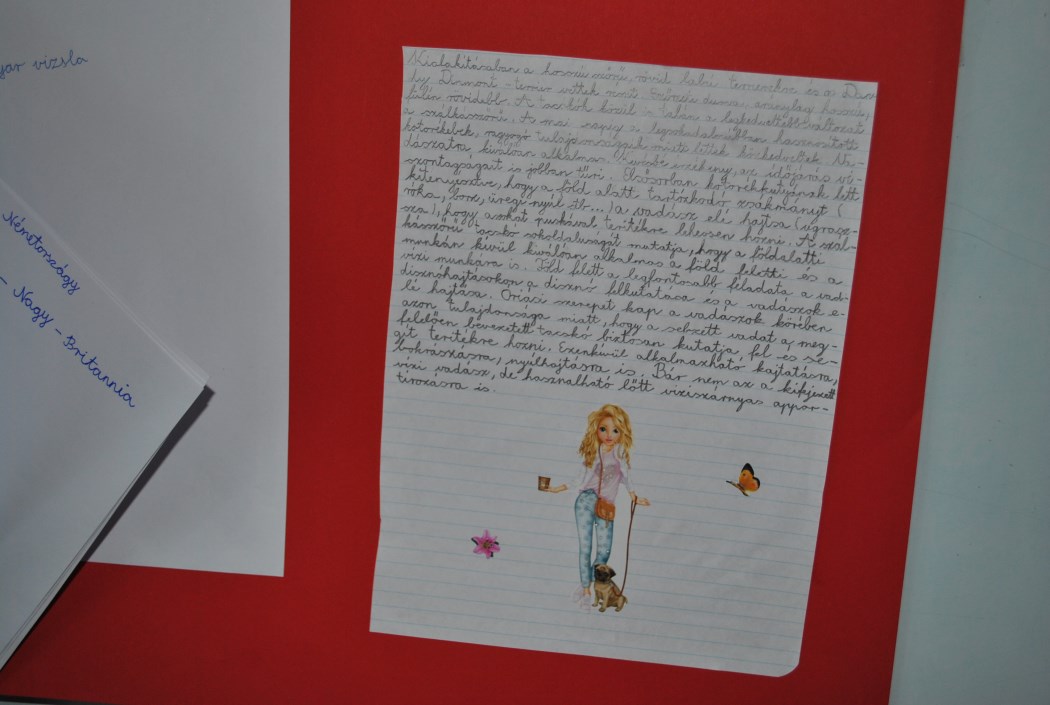 yar vizsla
Németországy
- Nagy - Britannia
Kialakításában a hosszú szőrű, rövid lábú terrierekce és a Dan-
dy Dinmont - terrier vettek részt. Szőrzete durva, aránylag hosszú,
fülén rövidebb. A tacskók közül talán a legkedveltebb változat
a szálkásszőrű. A mai napig a legsokoldalúbban hasznosított
kotorékebek, ragyogó tulajdonságaik miatt lettek közkedveltek. Va-
dászatra kiválóan alkalmas. Kevésbé érzékeny, az időjárás vi-
szontagságait is jobban tűri. Elsősorban kotorékkutyának lett
kitenyésztve, hogy a föld alatt tartózkodó zsákmányt (
róka, borz, üregi nyúl stb...) a vadász elé hajtsa (ugrasz-
sza), hogy azokat puskával terítékre lehessen hozni. A szál-
kásszőrű tacskó sokoldalúságát mutatja, hogy a földalatti
munkán kívül kiválóan alkalmas a föld feletti és a
vízi munkára is. Föld felett a legfontosabb feladata a vad-
disznóhajtásokon a disznó felkutatása és a vadászok e-
lé hajtása. Óriási szerepet kap a vadászok körében
azon tulajdonsága miatt, hogy a sebzett vadat a meg-
felelően bevezetett tacskó biztosan kutatja, fel és se-
gít terítékre hozni. Ezenkívül alkalmazható hajtatásra,
bokrászásra, nyúlhajtásra is. Bár nem az a kifejezett
vízi vadász, de használható lőtt víziszárnyas appor-
tírozásra is.